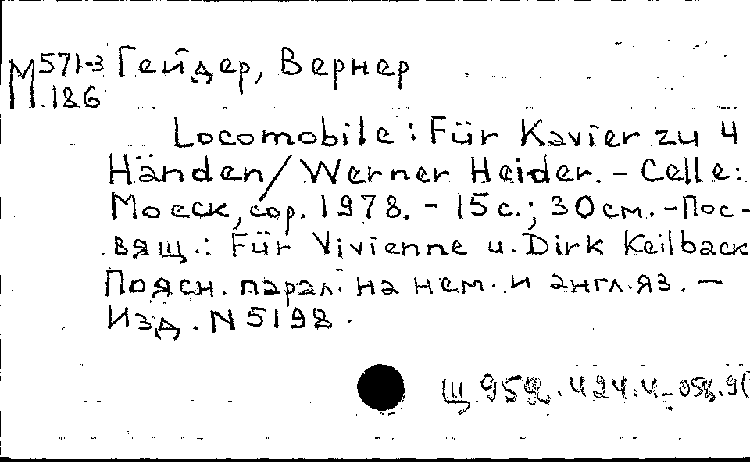 М571-3 Гейдер, Вернер
П.186
Locomobile : Für Kavier zu 4
Händen / Werner Heider. - Celle:
Moeck, cop. 1978. - 15 с.; 30 см. - Пос-
вящ.: Für Vivienne u. Dirk Keilback
Поясн. парал. на нем. и англ. яз. —
Изд. N 5198.
Щ 959.424.4